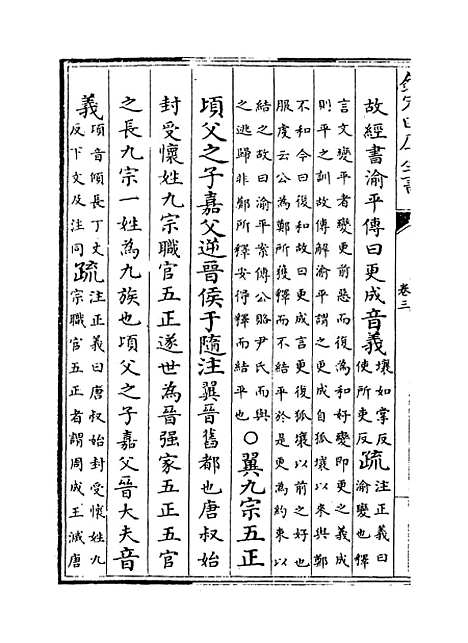 欽定四庫全書
卷三
故經書渝平傳曰更成音義壤如掌反使所吏反疏注正義曰渝變也釋
言文變平者變更前惡而復為和好變即更之義成
則平之訓故傳解渝平謂之更成自狐壤以來與鄭
不和今曰後和故曰更成言更復狐壤以前之好也
服虔云公為鄭所獲釋而不結平於是更為約束以
結之故曰渝平案傳公賂尹氏而與之逃歸非鄭所釋安得釋而結平也○翼九宗五正
頃父之子嘉父逆晉侯于隨注翼晉舊都也唐叔始
封受懷姓九宗職官五正遂世為晉强家五正五官
之長九宗一姓為九族也頃父之子嘉父晉大夫音
義頃音傾長丁丈反下文及注同疏注正義曰唐叔始封受懷姓九宗職官五正者謂周成王滅唐